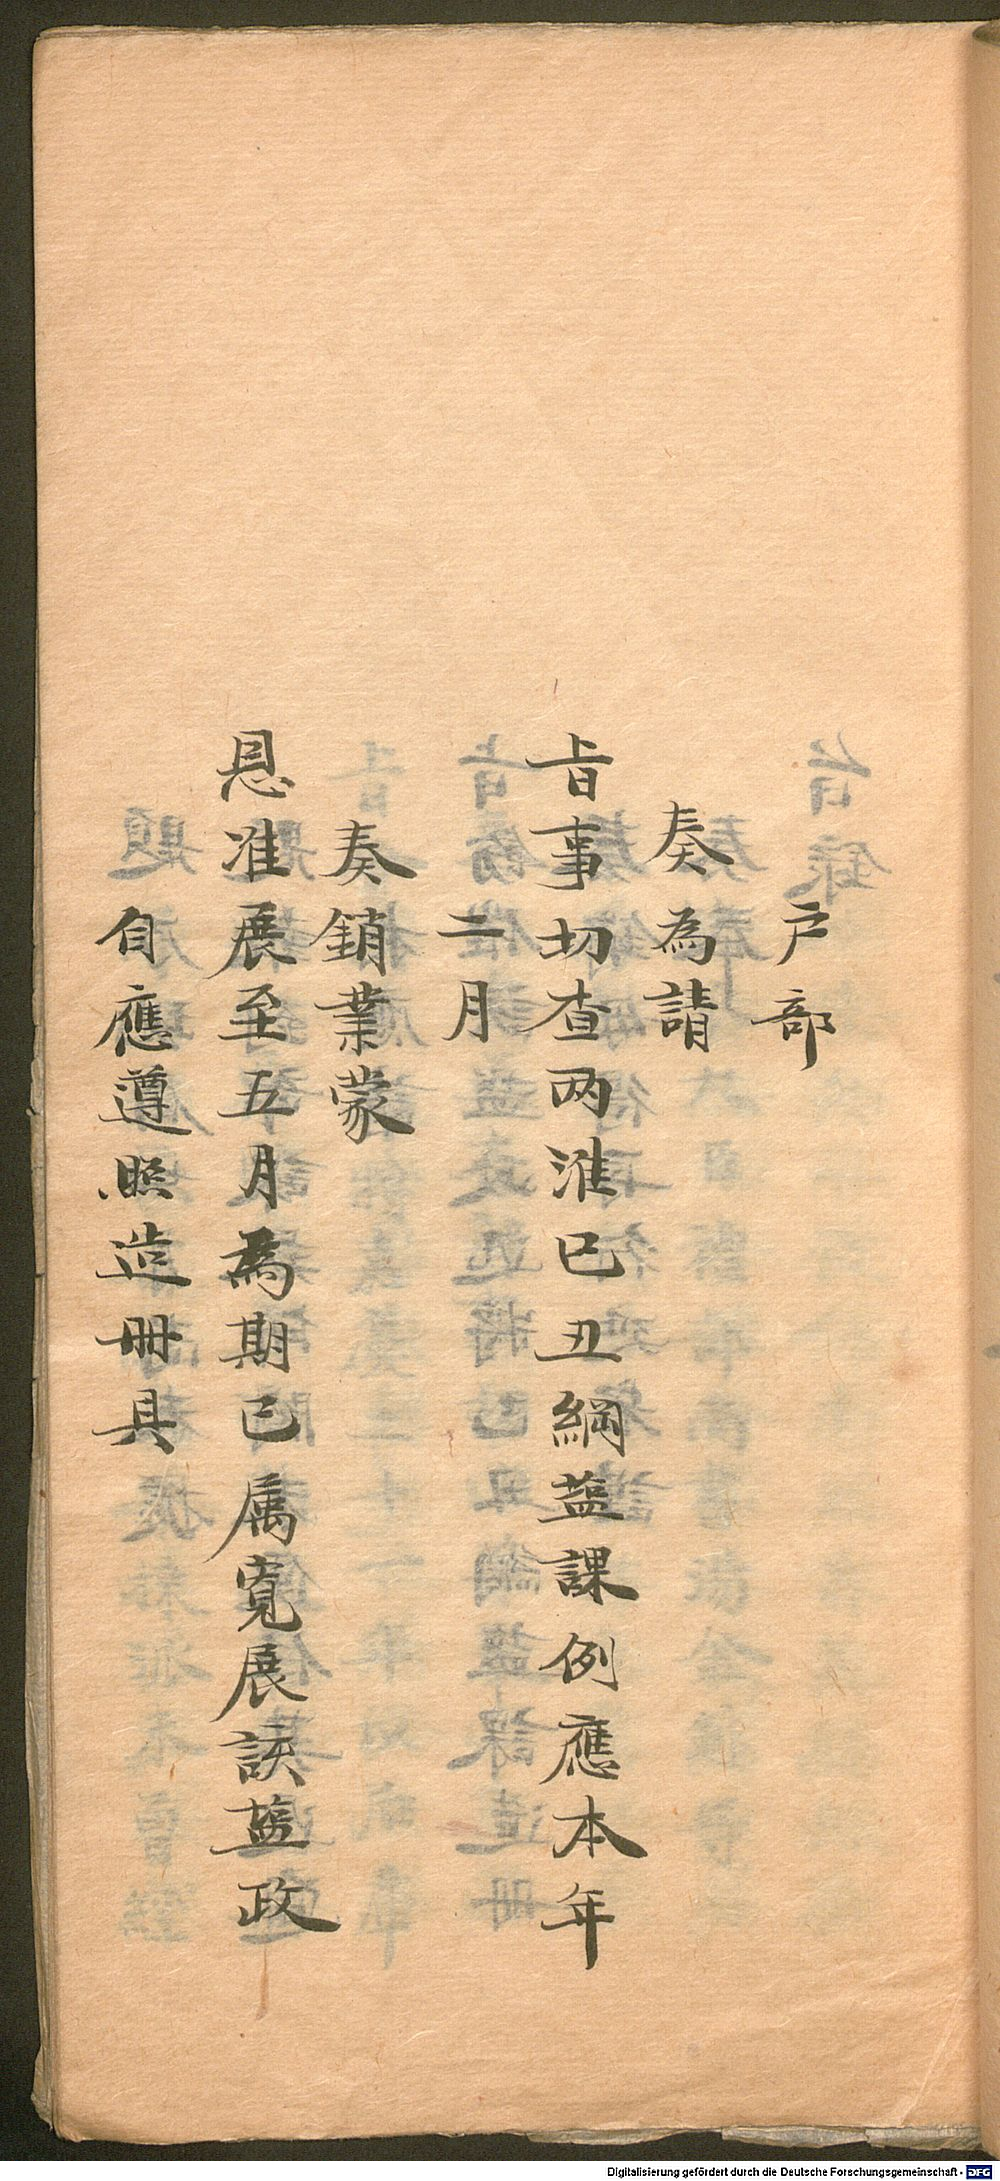 户部
奏為請
旨事切查两淮已丑綱盐課例應本年
二月
奏銷業蒙
恩准展至五月為期已属寬展該盐政
自應遵照造冊具
Digitalisierung gefördert durch die Deutsche Forschungsgemeinschaft - DFG